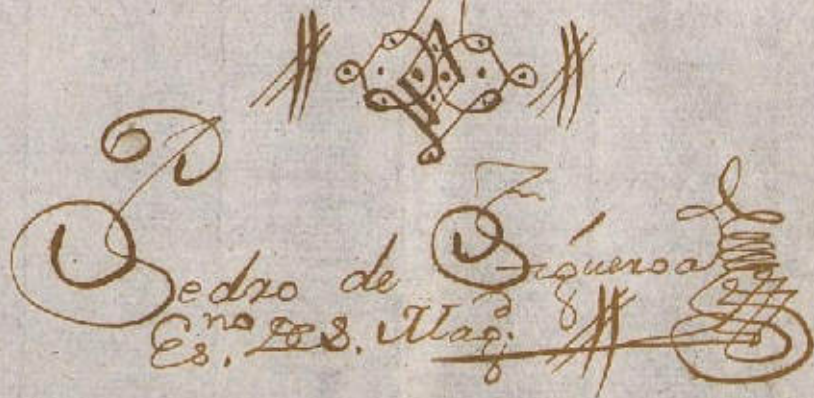 Pedro de Figueroa
Es.no De S. Magd.